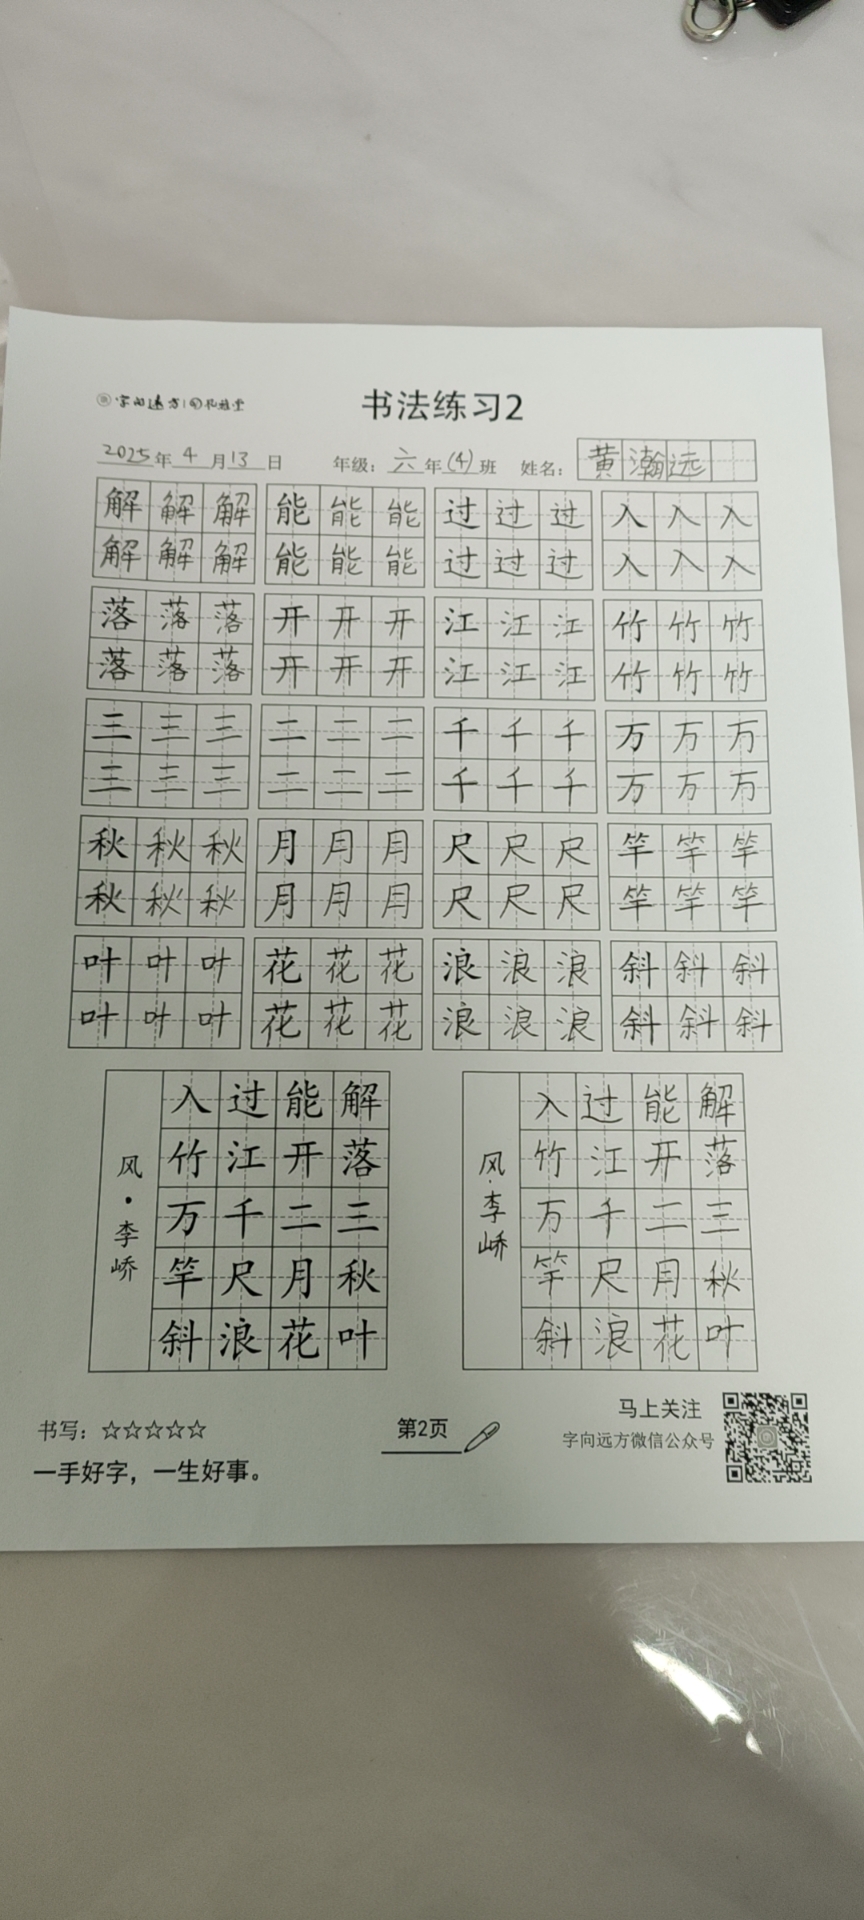 字向远方
书法练习2
2025年 4 月13 日 年级：六 年(4)班 姓名：黄瀚远
解解解 能能能 过过过 入入入
解解解 能能能 过过过 入入入
落落落 开开开 江江江 竹竹竹
落落落 开开开 江江江 竹竹竹
三三三 二二二 千千千 万万万
三三三 二二二 千千千 万万万
秋秋秋 月月月 尺尺尺 竿竿竿
秋秋秋 月月月 尺尺尺 竿竿竿
叶叶叶 花花花 浪浪浪 斜斜斜
叶叶叶 花花花 浪浪浪 斜斜斜
解落三秋叶
能开二月花
过江千尺浪
入竹万竿斜
风·李峤
解落三秋叶
能开二月花
过江千尺浪
入竹万竿斜
风·李峤
书写：☆☆☆☆☆
一手好字，一生好事。
第2页
马上关注
字向远方微信公众号